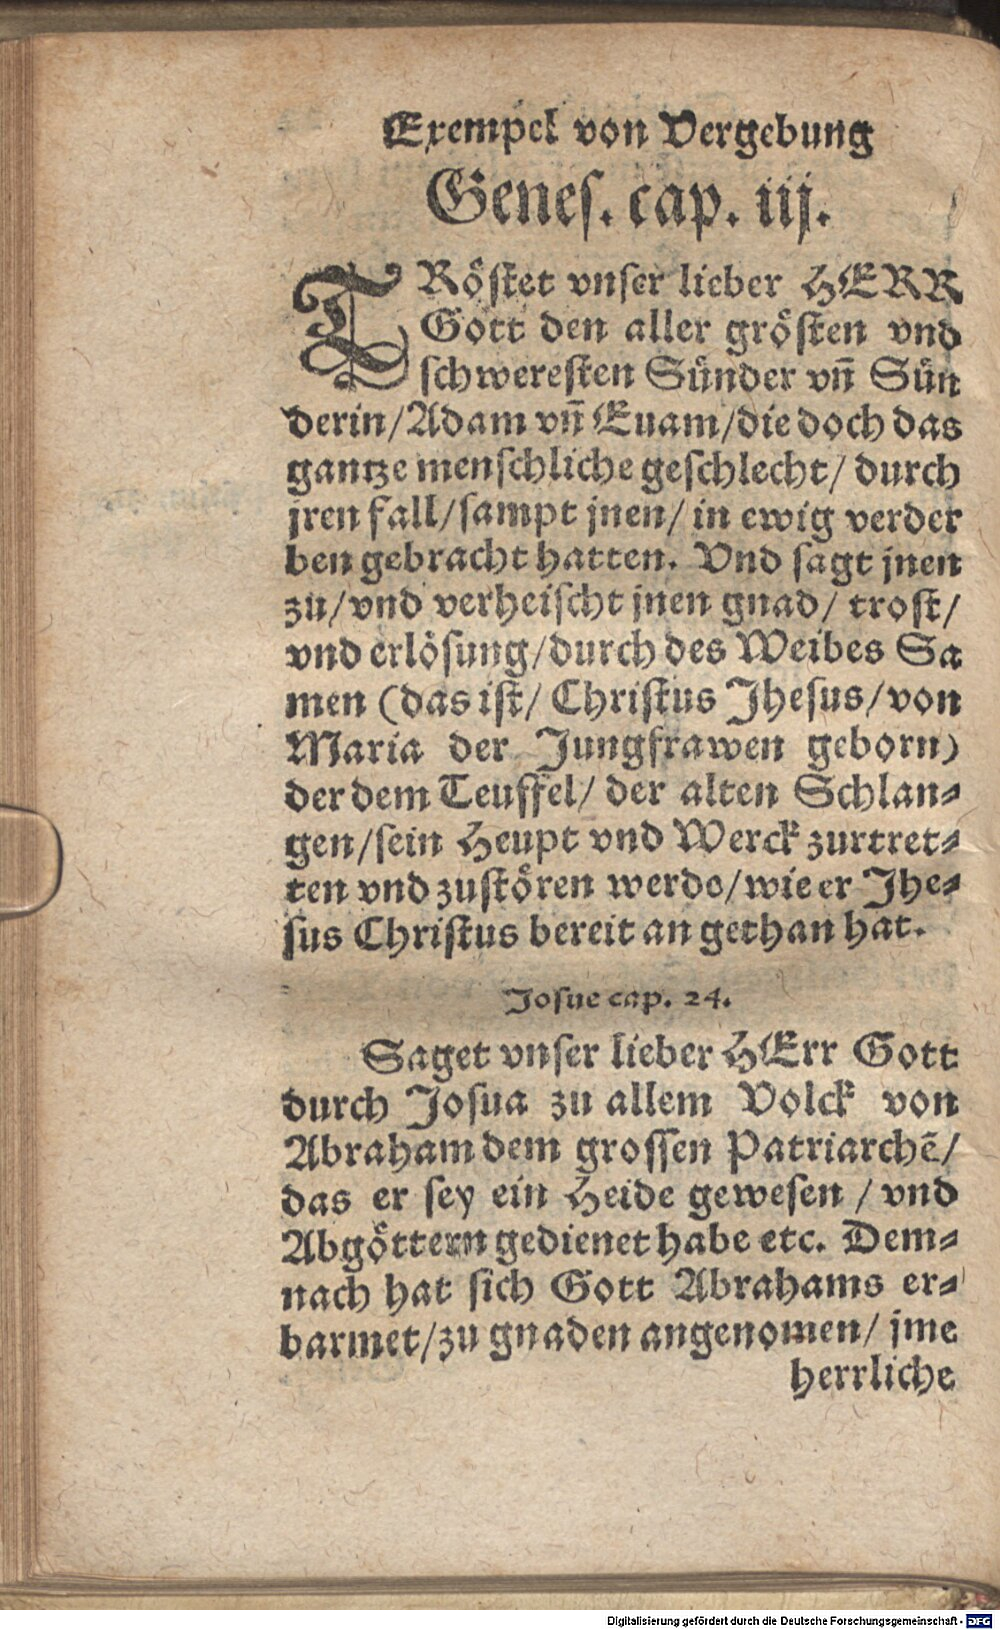 Exempel von Vergebung
Genes. cap. iij.
TRöstet vnser lieber HERR
Gott den aller grösten vnd
schweresten Sünder vñ Sün
derin/Adam vñ Euam/die doch das
gantze menschliche geschlecht/ durch
jren fall/sampt jnen/ in ewig verder
ben gebracht hatten. Vnd sagt jnen
zu/vnd verheischt jnen gnad/ trost/
vnd erlösung/durch des Weibes Sa
men (das ist/ Christus Jhesus/von
Maria der Jungfrawen geborn)
der dem Teuffel/ der alten Schlan-
gen/sein Heupt vnd Werck zurtret-
ten vnd zustören werde/wie er Jhe-
sus Christus bereit an gethan hat.
Josue cap. 24.
Saget vnser lieber HErr Gott
durch Josua zu allem Volck von
Abraham dem grossen Patriarchē/
das er sey ein Heide gewesen / vnd
Abgöttern gedienet habe etc. Dem-
nach hat sich Gott Abrahams er-
barmet/zu gnaden angenomen/ jme
herrliche
Digitalisierung gefördert durch die Deutsche Forschungsgemeinschaft - DFG